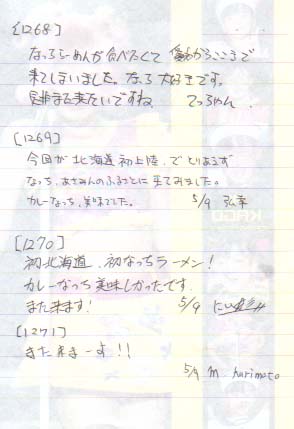 [1268]
なっちらーめんが食べたくて
来てしまいました。なっち大好きです。
是非また来たいですね てっちゃん
[1269]
今回が北海道初上陸。でとりあえず
なっち、あさみんのふるさとに来てみました。
カレーなっち、美味でした。 5/9 弘幸
[1270]
初北海道、初なっちラーメン!
カレーなっち美味しかったです。
また来ます! 5/9
[1271]
また来まーす!!
5/9 m harimoto